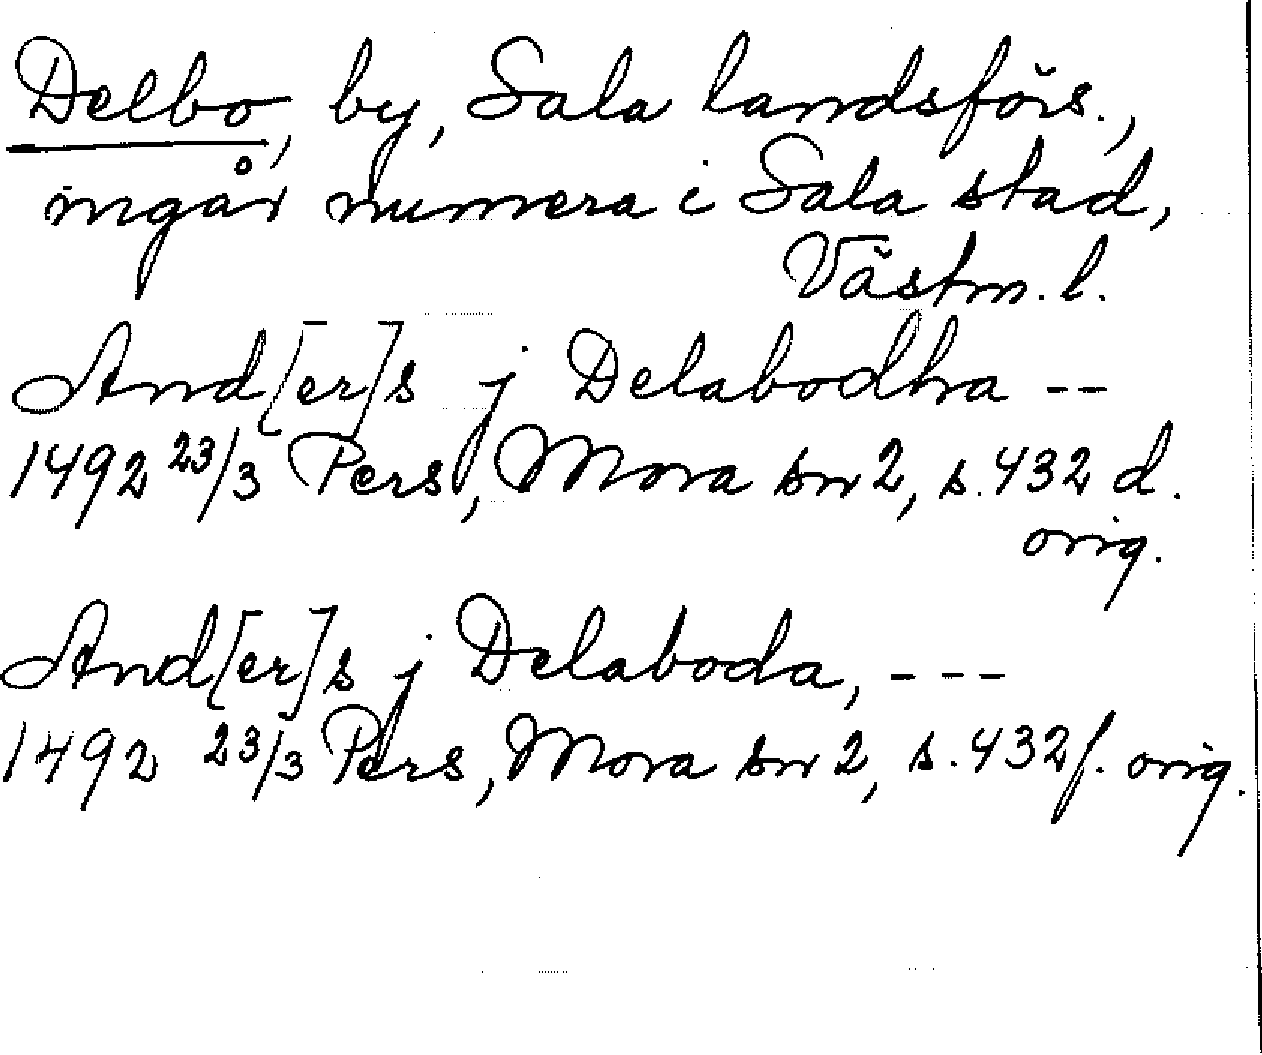 Delbo, by, Sala landsförs.,
ingår numera i Sala stad,
Västm. l.
And[er]s j Delabodha --
1492 23/3 Pers, Mora sn 2, s. 432 d.
orig.
And[er]s j Delaboda, ---
1492 23/3 Pers, Mora sn 2, s. 432 f. orig.